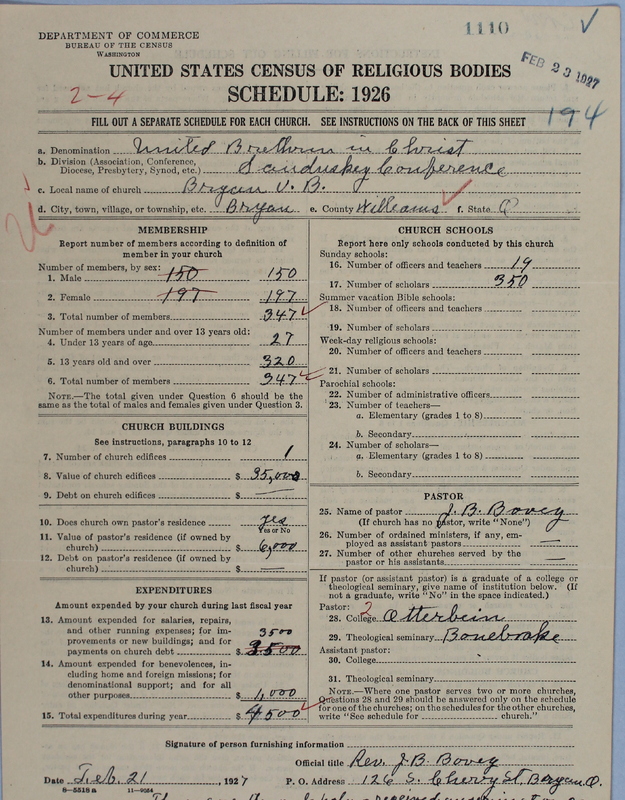 1110
DEPARTMENT OF COMMERCE
BUREAU OF THE CENSUS
WASHINGTON
FEB 23 1927
UNITED STATES CENSUS OF RELIGIOUS BODIES
2-4
SCHEDULE: 1926
FILL OUT A SEPARATE SCHEDULE FOR EACH CHURCH. SEE INSTRUCTIONS ON THE BACK OF THIS SHEET
194
a. Denomination United Brethren in Christ
b. Division (Association, Conference,
Diocese, Presbytery, Synod, etc.) Sandusky Conference
c. Local name of church Bryan U. B.
d. City, town, village, or township, etc. Bryan e. County Williams f. State O
MEMBERSHIP
Report number of members according to definition of
member in your church
Number of members, by sex:
1. Male 150 150
2. Female 197 197
3. Total number of members 347
Number of members under and over 13 years old:
4. Under 13 years of age 27
5. 13 years old and over 320
6. Total number of members 347
NOTE.—The total given under Question 6 should be
same as the total of males and females given under Question 3.
CHURCH BUILDINGS
See instructions, paragraphs 10 to 12
7. Number of church edifices 1
8. Value of church edifices $ 35,000
9. Debt on church edifices $ —
10. Does church own pastor's residence yes
Yes or No
11. Value of pastor's residence (if owned by
church) $ 6,000
12. Debt on pastor's residence (if owned by
church) $ —
EXPENDITURES
Amount expended by your church during last fiscal year
13. Amount expended for salaries, repairs,
and other running expenses; for im-
provements or new buildings; and for
payments on church debt $ 3500
3500
14. Amount expended for benevolences, in-
cluding home and foreign missions; for
denominational support; and for all
other purposes $ 1,000
15. Total expenditures during year $ 4500
CHURCH SCHOOLS
Report here only schools conducted by this church
Sunday schools:
16. Number of officers and teachers 19
17. Number of scholars 350
Summer vacation Bible schools:
18. Number of officers and teachers
19. Number of scholars
Week-day religious schools:
20. Number of officers and teachers
21. Number of scholars
Parochial schools:
22. Number of administrative officers
23. Number of teachers—
a. Elementary (grades 1 to 8)
b. Secondary
24. Number of scholars—
a. Elementary (grades 1 to 8)
b. Secondary
PASTOR
25. Name of pastor J. B. Bovey
(If church has no pastor, write "None")
26. Number of ordained ministers, if any, em-
ployed as assistant pastors —
27. Number of other churches served by the
pastor or his assistants —
If pastor (or assistant pastor) is a graduate of a college or
theological seminary, give name of institution below. (If
not a graduate, write "No" in the space indicated.)
Pastor: 2
28. College Otterbein
29. Theological seminary Bonebrake
Assistant pastor:
30. College
31. Theological seminary
NOTE.—Where one pastor serves two or more churches,
Questions 28 and 29 should be answered only on the schedule
for one of the churches; on the schedules for the other churches,
write "See schedule for church."
Signature of person furnishing information
Official title Rev. J. B. Bovey
Date Feb. 21, 1927 P. O. Address 126 S. Cherry St. Bryan, O.
8-5518 a 11-9054